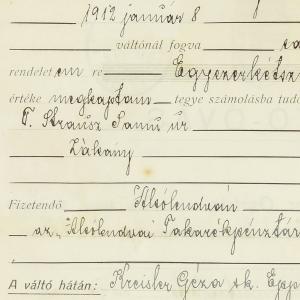 1912 január 8
váltónál fogva
rendeletem re Egyezerkétsz
értéke megkaptam tegye számolásba tudó
T. Strausz Samu úr
Zákány
Fizetendő Alsólendván
az „Alsólendvai Takarékpénztár
A váltó hátán: Kreisler Géza sk. Epp